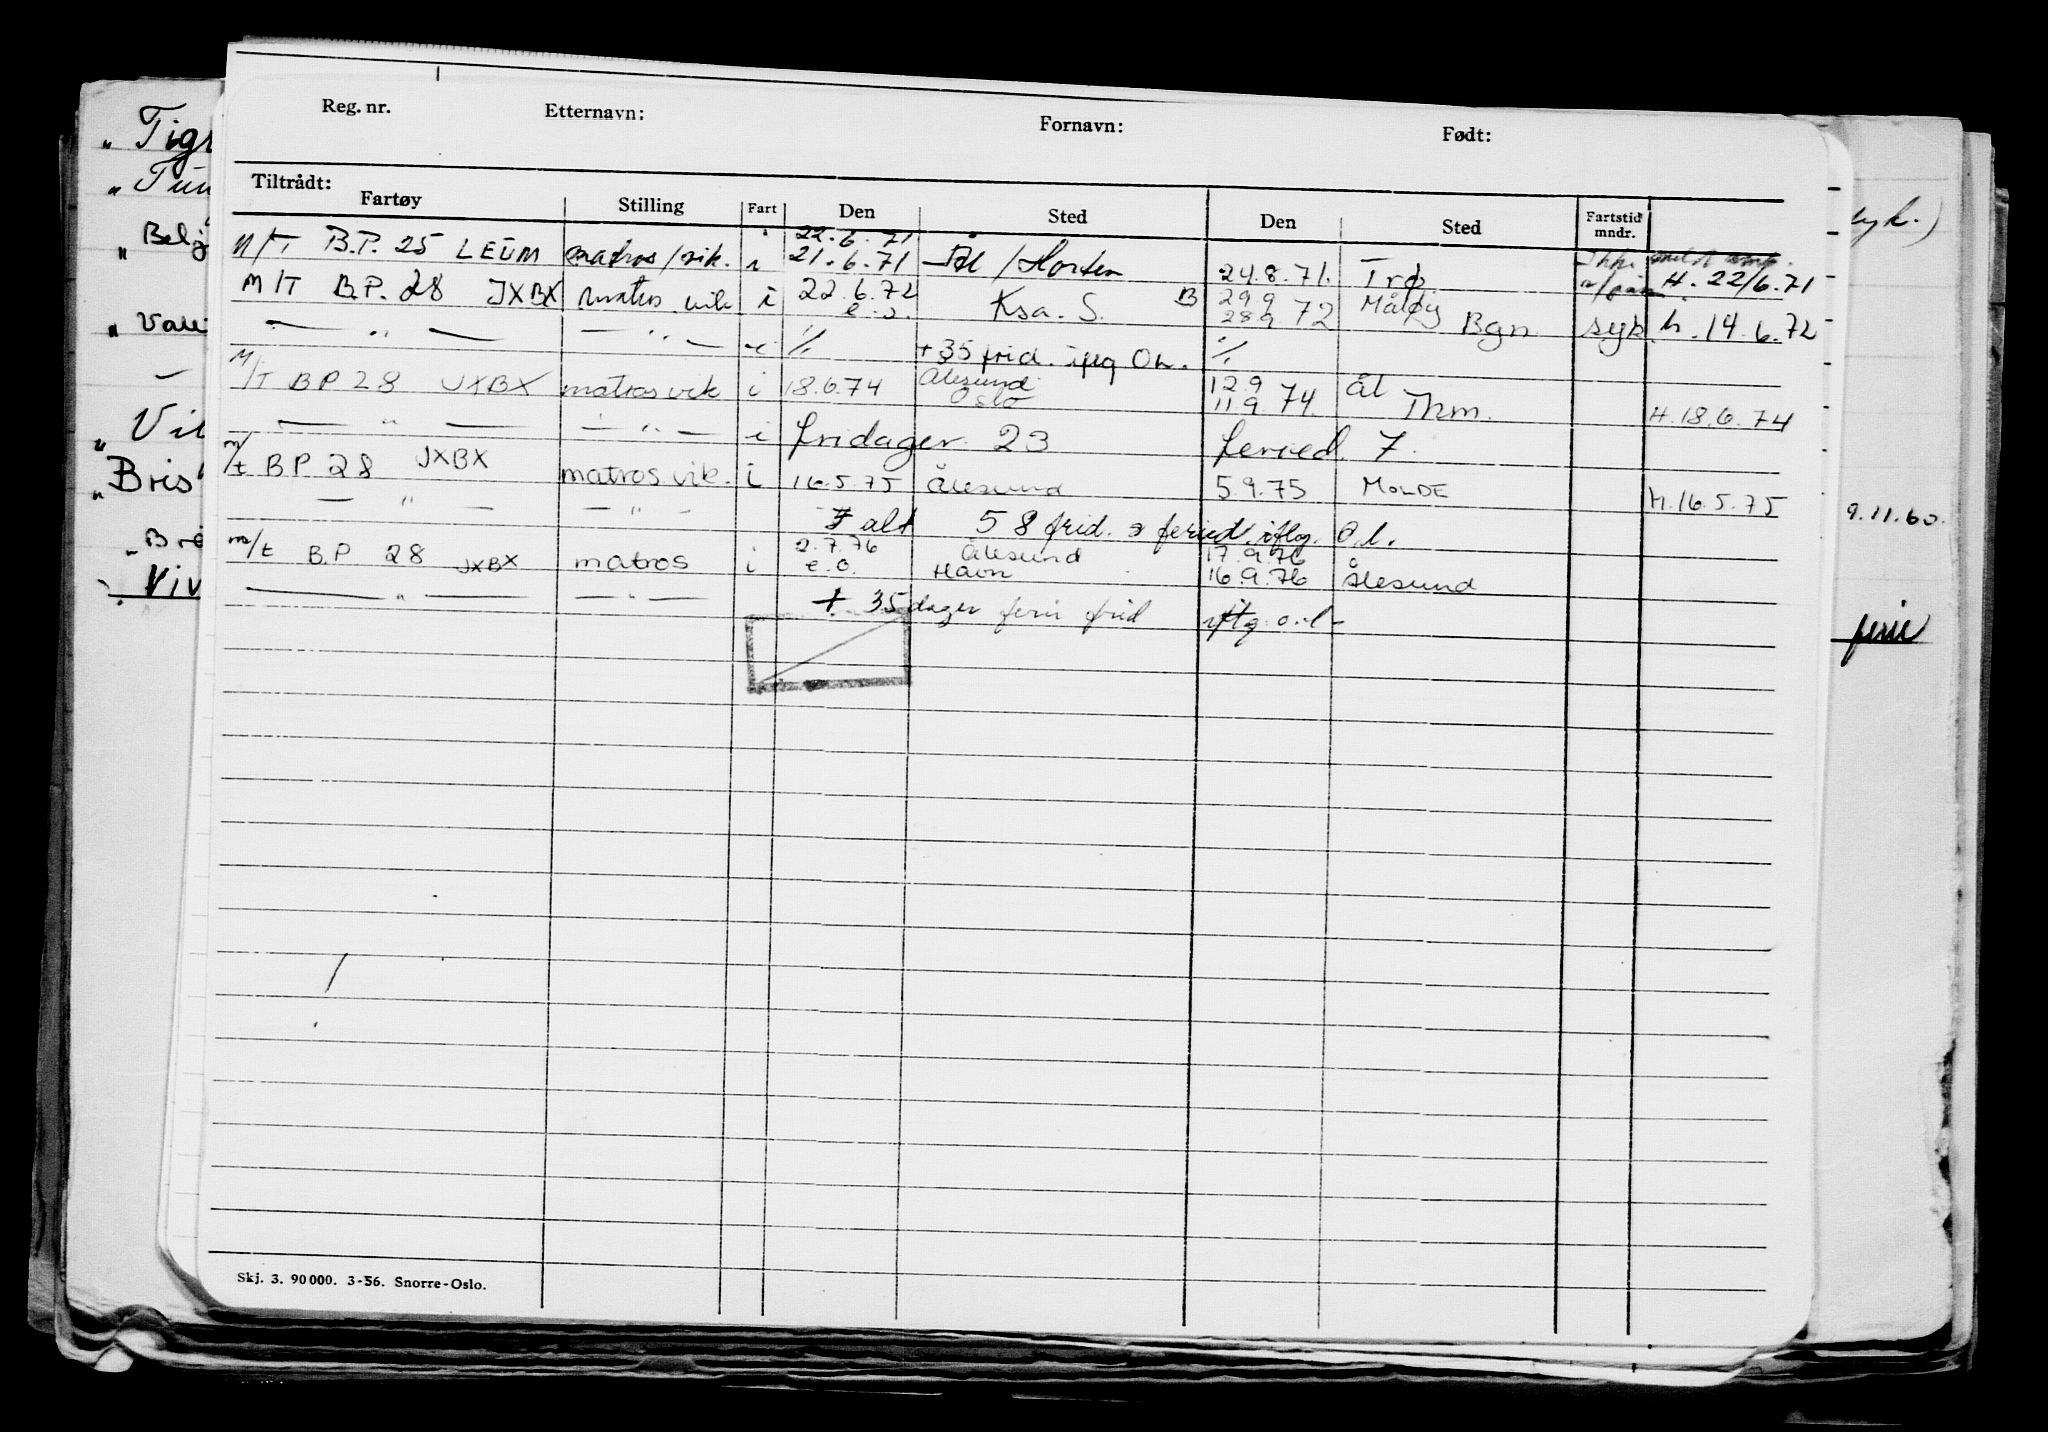 Reg. nr. Etternavn: Fornavn: Født:
Tiltrådt:
Fartøy Stilling Fart Den Sted Den Sted Fartstid mndr.
M/T B.P. 25 LEUM matros/vik. i 22.6.71 21.6.71 Ål/Horten 24.8.71. Trø H. 22/6.71
M/T B.P. 28 JXBX matros vik i 22.6.72 e.o. Ksa. S. B 29.9 28.9 72 Måløy Bgn syk. h. 14.6.72
— " — — " — i % + 35 frid. iflg Oh. %
M/T B P 28 JXBX matros vik i 18.6.74 Ålesund Oslo 12.9 11.9.74 Ål Thm. H.18.6.74
— " — — " — i fridager 23 feried. 7.
m/t B P 28 JXBX matros vik. i 16.5.75 Ålesund 5.9.75 MOLDE h.16.5.75
— " — " — I alt 58 frid. feried. iflg. o.l.
m/t B.P 28 JXBX matros i 2.7.76 e.o. Ålesund Havn 17.9.76 16.9.76 Ålesund
— " — — " — + 35 dager ferie frid iflg. o.l-
Skj. 3. 90 000. 3-56. Snorre-Oslo.
" Tigr
" Tun
"
" Vil
" Bris
" Bre
Viv
9.11.60.
ferie